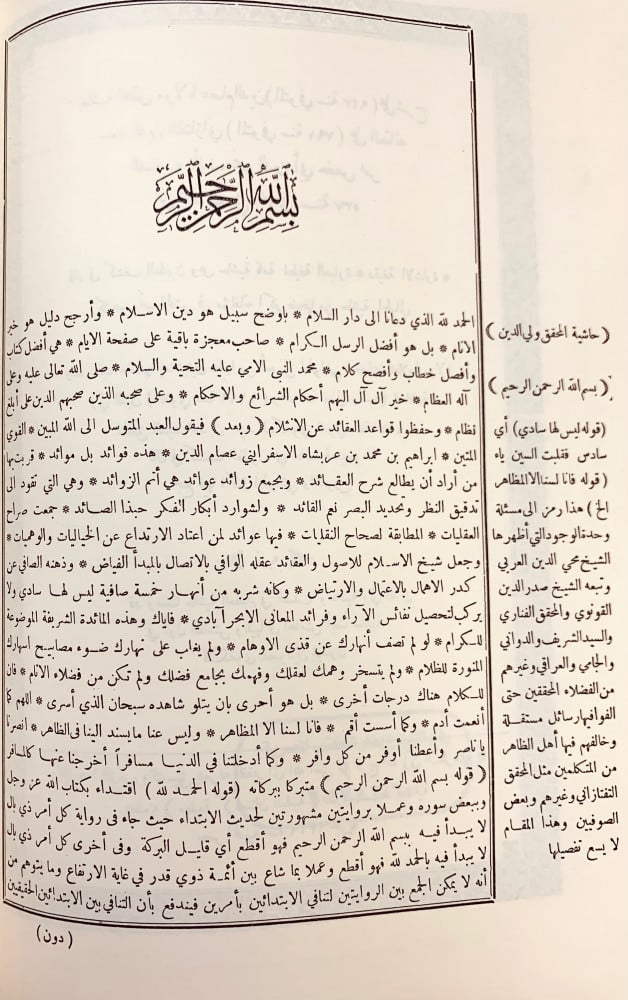 بسم الله الرحمن الرحيم
الحمد لله الذي دعانا الى دار السلام * باوضح سبيل هو دين الاسلام * وأرجح دليل هو خير
الانام * بل هو أفضل الرسل الكرام * صاحب معجزة باقية على صفحة الايام * هي أفضل كتاب
وأفصل خطاب وأفصح كلام * محمد النبى الامي عليه التحية والسلام * صلى الله تعالى عليه وعلى
آله العظام * خير آل آل اليهم أحكام الشرائع والاحكام * وعلى صحبه الذين صحبهم الدين على أبلغ
نظام * وحفظوا قواعد العقائد عن الانثلام ( وبعد ) فيقول العبد المتوسل الى الله المبين * القوي
المتين * ابراهيم بن محمد بن عربشاه الاسفرايني عصام الدين * هذه فوائد بل موائد * قربتها
من أراد أن يطالع شرح العقائد * ويجمع زوائد عوائد هي أتم الزوائد * وهي التي تقود الى
تدقيق النظر وتحديد البصر نعم القائد * ولشوارد أبكار الفكر حبذا الصائد * جمعت صراح
العقليات * المطابقة لصحاح النقليات * فيها عوائد لمن اعتاد الارتداع عن الخياليات والوهميات *
وجعل شيخ الاسلام للاصول والعقائد عقله الوافي بالاتصال بالمبدأ الفياض * وذهنه الصافي عن
كدر الاهمال بالاعتمال والارتياض * وكانه شربه من أنهار خمسة صافية ليس لها سادي ولا
يركب لتحصيل نفائس الآراء وفرائد المعاني الابحرا آبادي * فاياك وهذه المائدة الشريفة الموضوعة
للكرام * لو لم تصف أنهارك عن قذى الاوهام * ولم يغاب على نهارك ضوء مصابيح اسهارك
المنورة للظلام * ولم يتسخر وهمك لعقلك وفهمك بجامع فضلك ولم تكن من فضلاء الانام * فان
للكلام هناك درجات أخرى * بل هو أحرى بان يتلو شاهده سبحان الذي أسرى * اللهم كما
أنعمت أدم * وكما أسست أقم * فانا لسنا الا المظاهر * وليس عنا ما يسند الينا فى الظاهر * انصرنا
يا ناصر وأعطنا أوفر من كل وافر * وكما أدخلتنا في الدنيا مسافراً أخرجنا عنها كالمسافر
( قوله بسم الله الرحمن الرحيم ) متبركا ببركاته ( قوله الحمد لله ) اقتداء بكتاب الله عز وجل
وببعض سوره وعملا بروايتين مشهورتين لحديث الابتداء حيث جاء فى رواية كل أمر ذي بال
لا يبدأ فيه ببسم الله الرحمن الرحيم فهو أقطع أي قليل البركة وفى أخرى كل أمر ذي بال
لا يبدأ فيه بالحمد لله فهو أقطع وعملا بما شاع بين أئمة ذوي قدر في غاية الارتفاع وما يتوهم من
أنه لا يمكن الجمع بين الروايتين لتنافي الابتدائين بأمرين فيندفع بأن التنافي بين الابتدائين الحقيقيين
( دون )
( حاشية المحقق ولي الدين )
( بسم الله الرحمن الرحيم )
( قوله ليس لها سادي ) أي
سادس فقلبت السين ياء
( قوله فانا لسنا الا المظاهر
الخ ) هذا رمز الى مسئلة
وحدة الوجود التي أظهرها
الشيخ محي الدين العربي
وتبعه الشيخ صدر الدين
القونوي والمحقق الفناري
والسيد الشريف والدواني
والجامي والعراقي وغيرهم
من الفضلاء المحققين حتى
الفوا فيها رسائل مستقلة
وخالفهم فيها أهل الظاهر
من المتكلمين مثل المحقق
التفتازاني وغيرهم وبعض
الصوفيين وهذا المقام
لا يسع تفصيلها